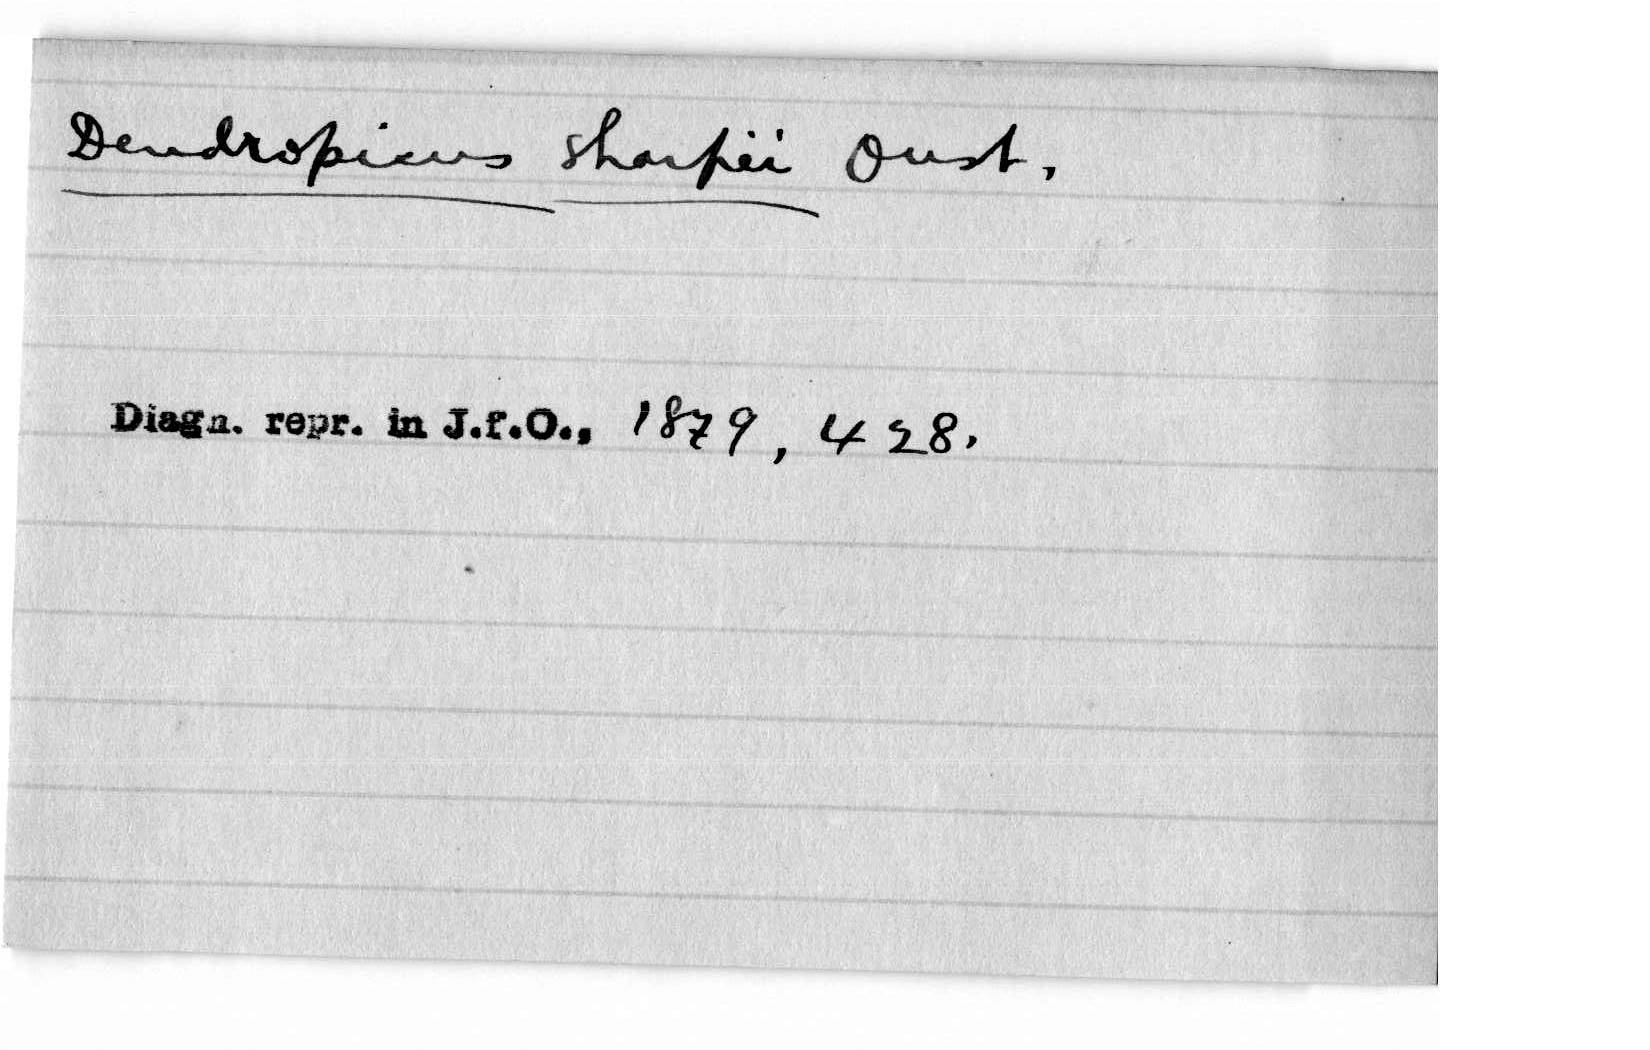 Dendropicus sharpii Oust.
Diagn. repr. in J.f.O., 1879, 428.